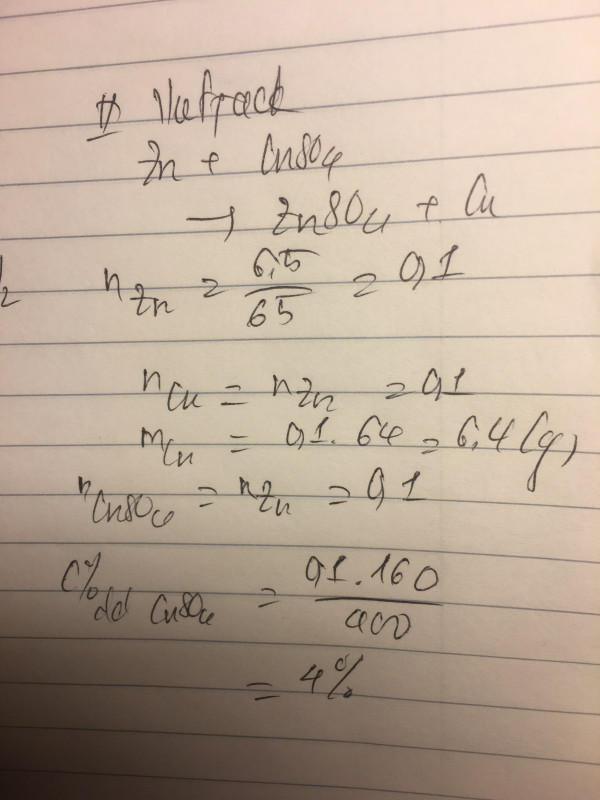 Zn + CuSO4
→ ZnSO4 + Cu
nZn = 6,5/65 = 0,1
nCu = nZn = 0,1
mCu = 0,1.64 = 6,4 (g)
nCuSO4 = nZn = 0,1
C% dd CuSO4 = 0,1.160/400
= 4%